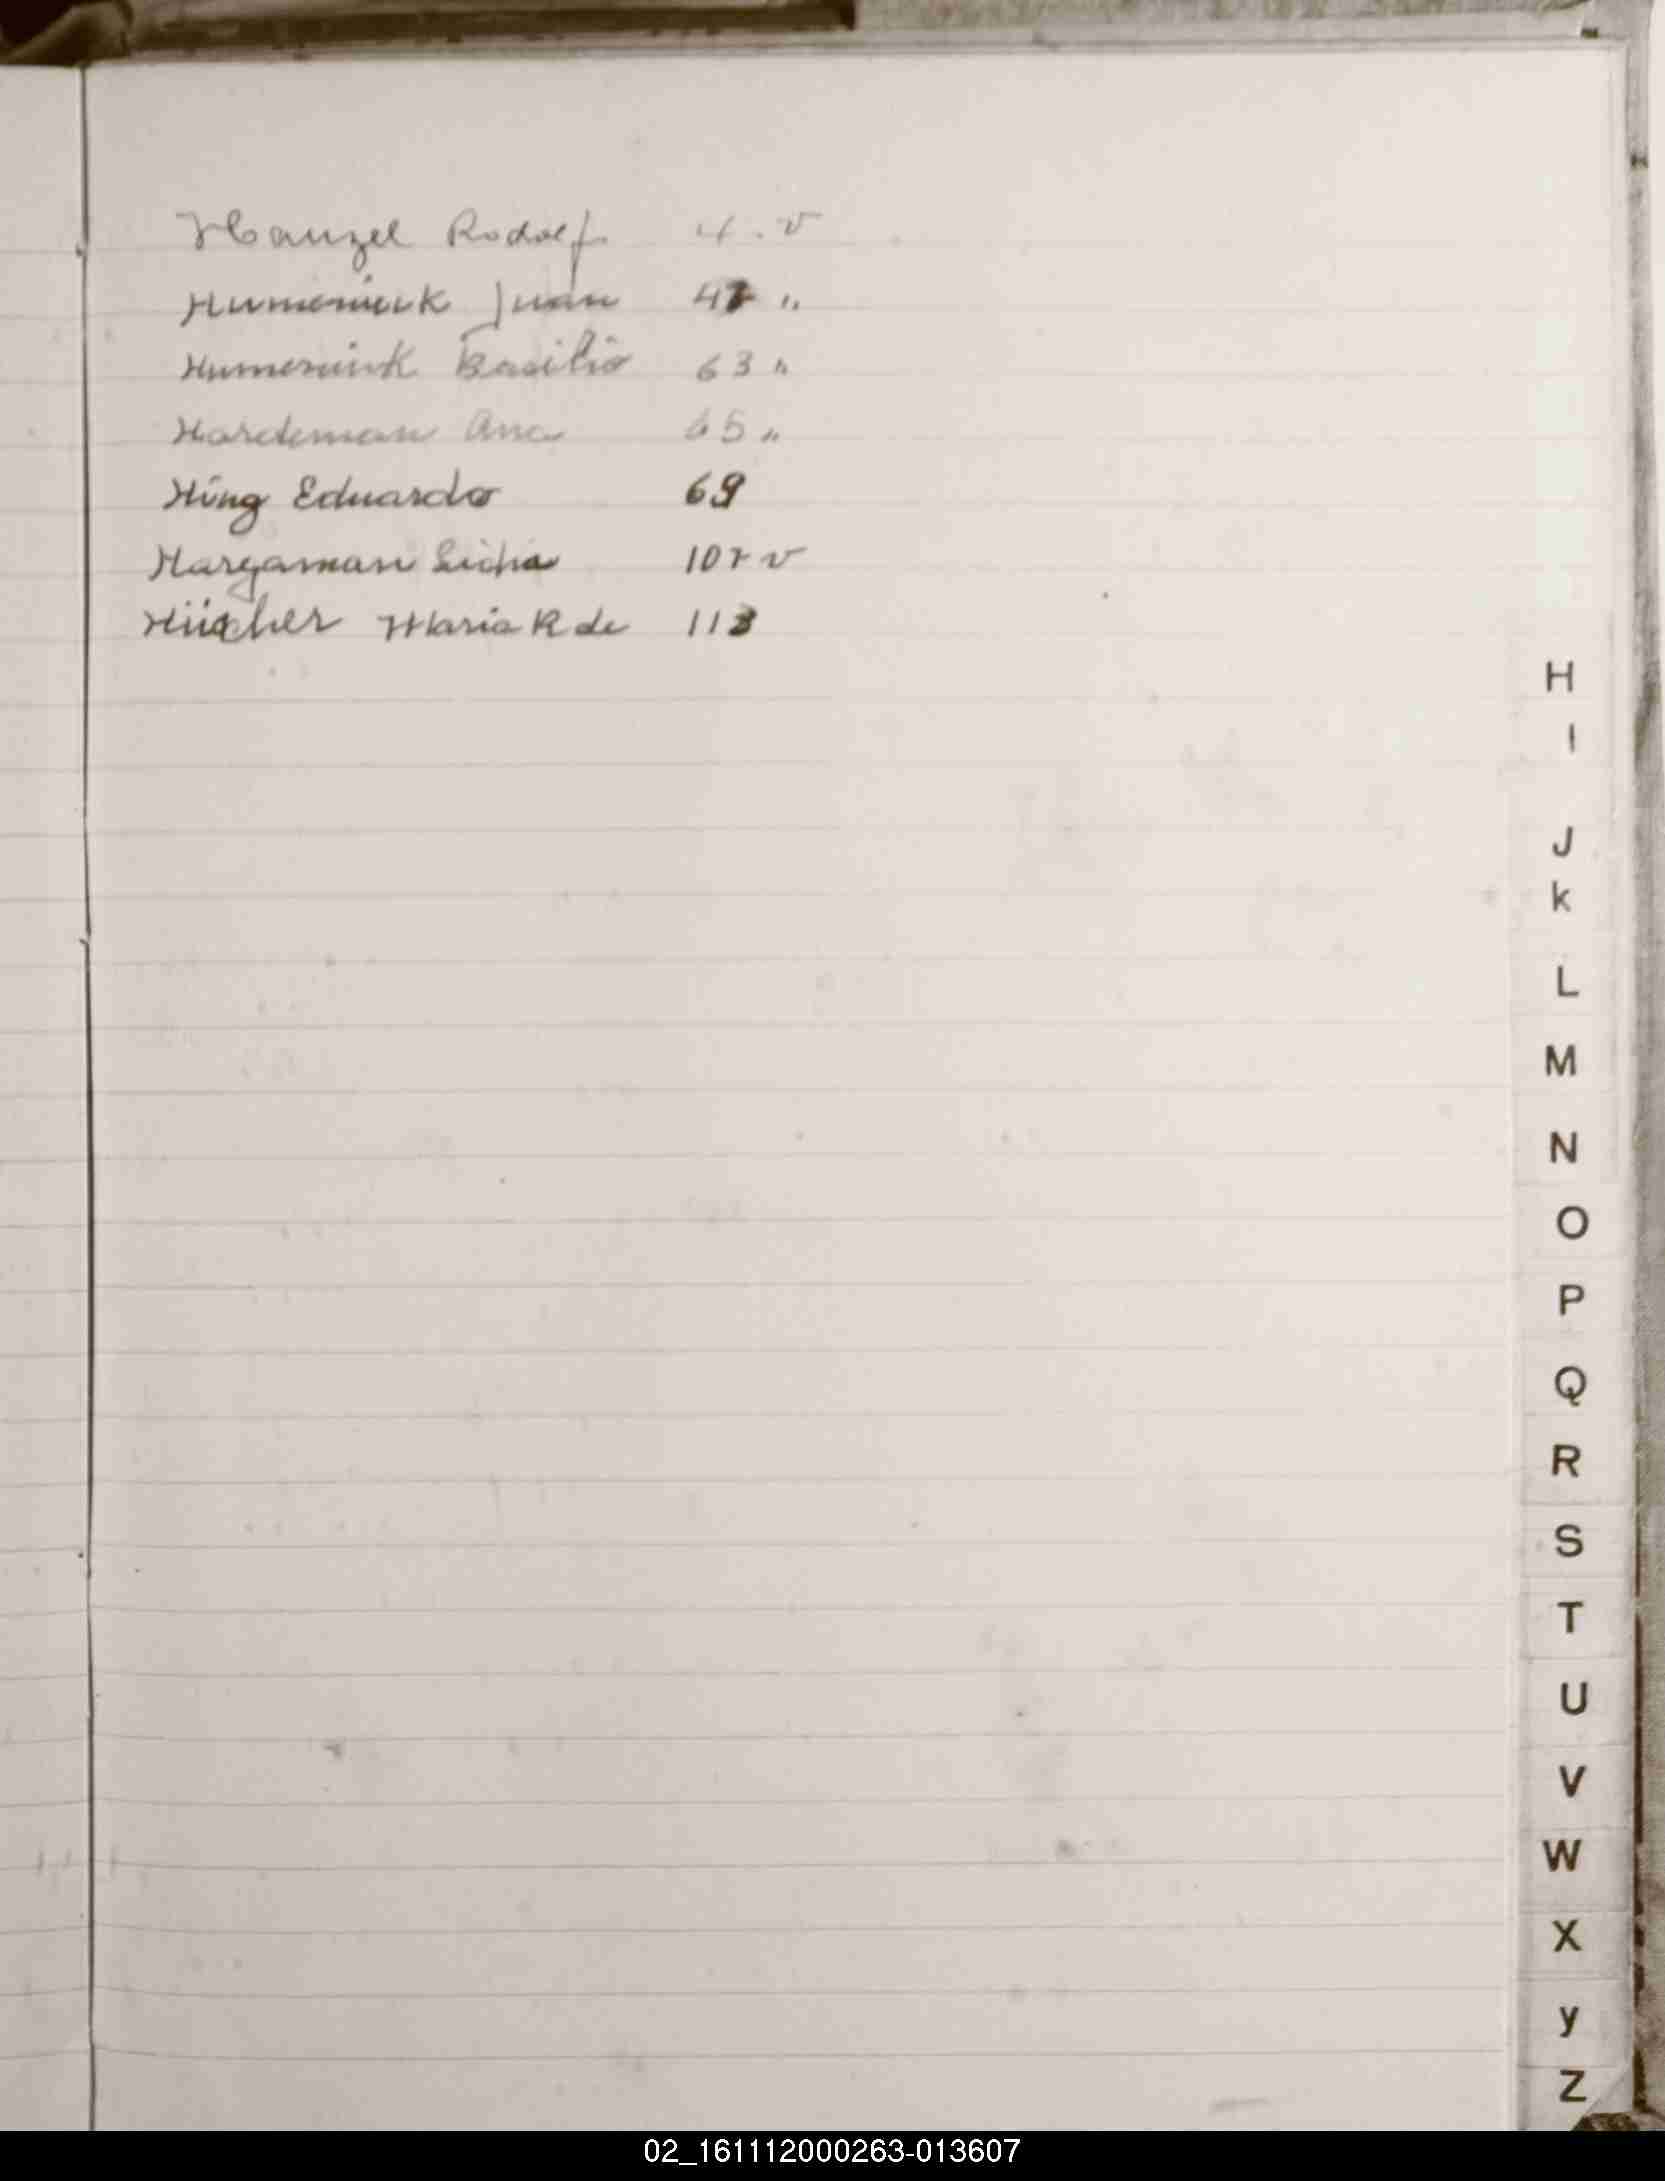 Hanzel Rodolf 4. v
Humeniuk Juan 47 "
Humeniuk Basilio 63 "
Hardeman Ana 65 "
Hüng Eduardo 69
Hargaman Lidia 107 v
Maria R de 113
H
I
J
k
L
M
N
O
P
Q
R
S
T
U
V
W
X
y
Z
02_161112000263-013607